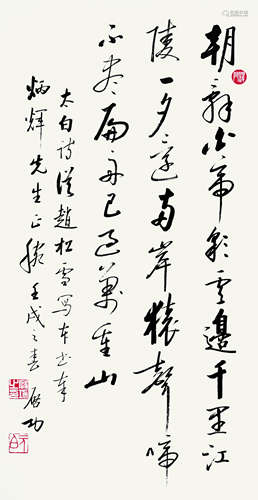 朝辭白帝彩雲邊千里江
陵一夕還兩岸猿聲啼
不盡扁舟已過萬重山
太白詩從趙松雪寫本書奉
炳輝先生正腕壬戌之春 啟功